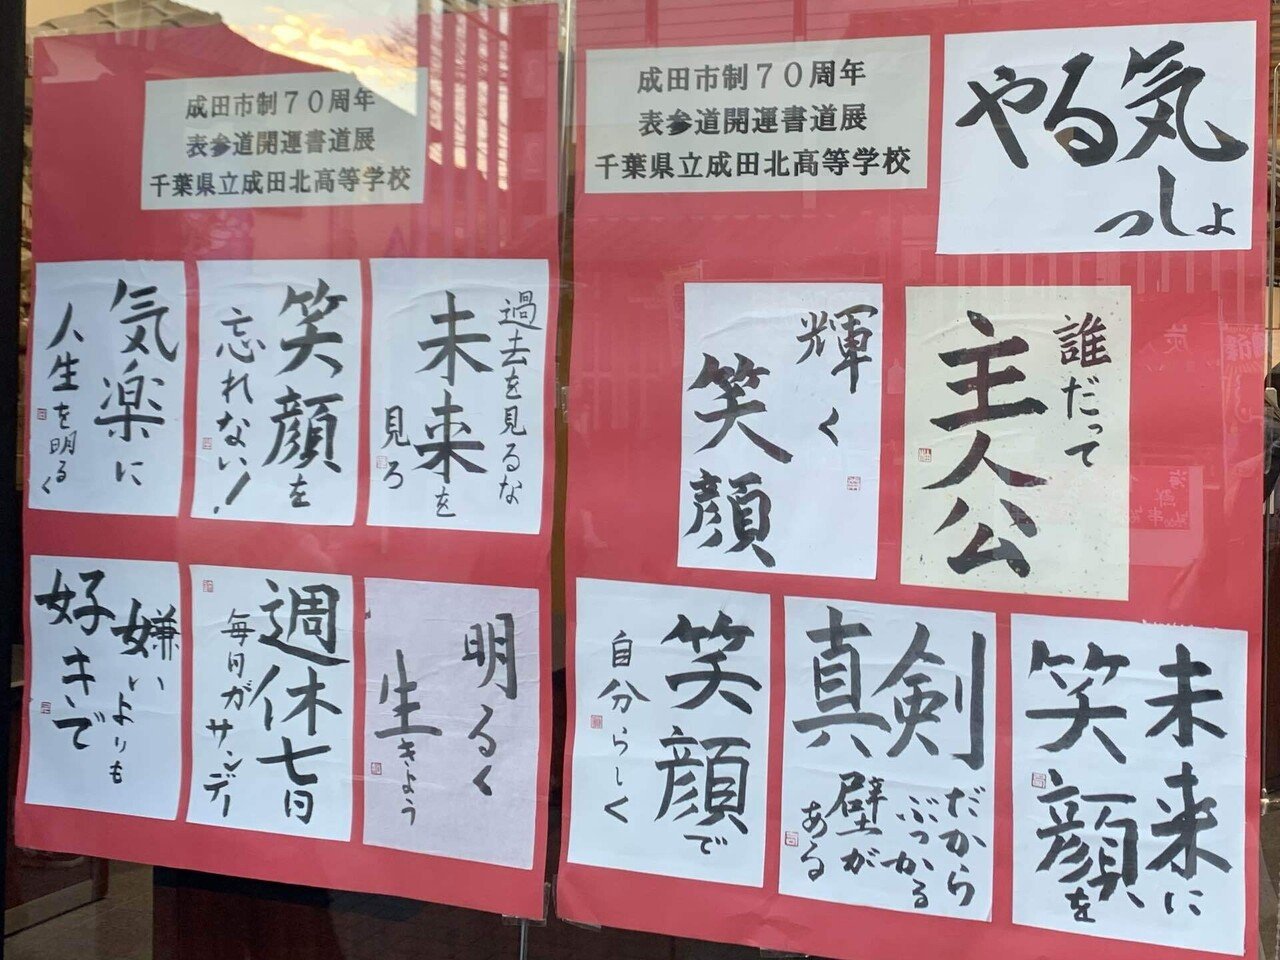 成田市制70周年
表参道開運書道展
千葉県立成田北高等学校
過去を見るな
未来を
見ろ
笑顔を
忘れない！
気楽に
人生を明るく
明るく
生きよう
週休七日
毎日がサンデー
嫌いよりも
好キで
成田市制70周年
表参道開運書道展
千葉県立成田北高等学校
やる気
っしょ
誰だって
主人公
輝く
笑顔
未来に
笑顔を
真剣
だから
ぶつかる
壁が
ある
笑顔で
自分らしく